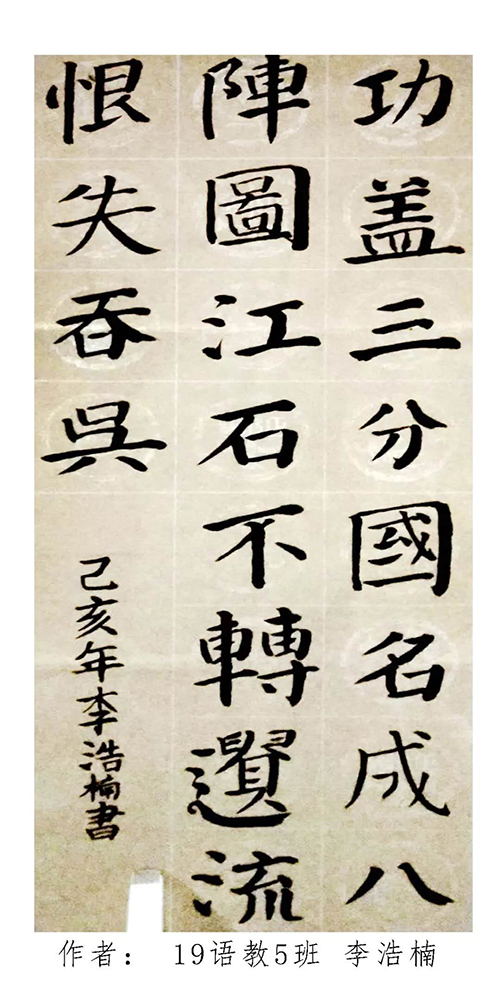 功盖三分國名成八
陣圖江石不轉遺流
恨失吞吳
己亥年李浩楠書
作者： 19语教5班 李浩楠